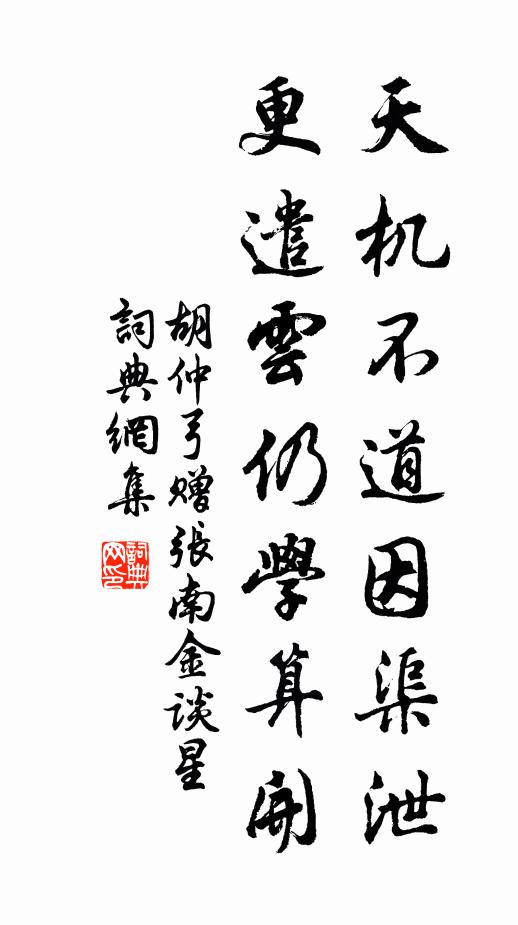 天机不道因渠泄
更遣雲仍學算開
胡仲弓赠張南金谈星
詞典網集
詞典网印